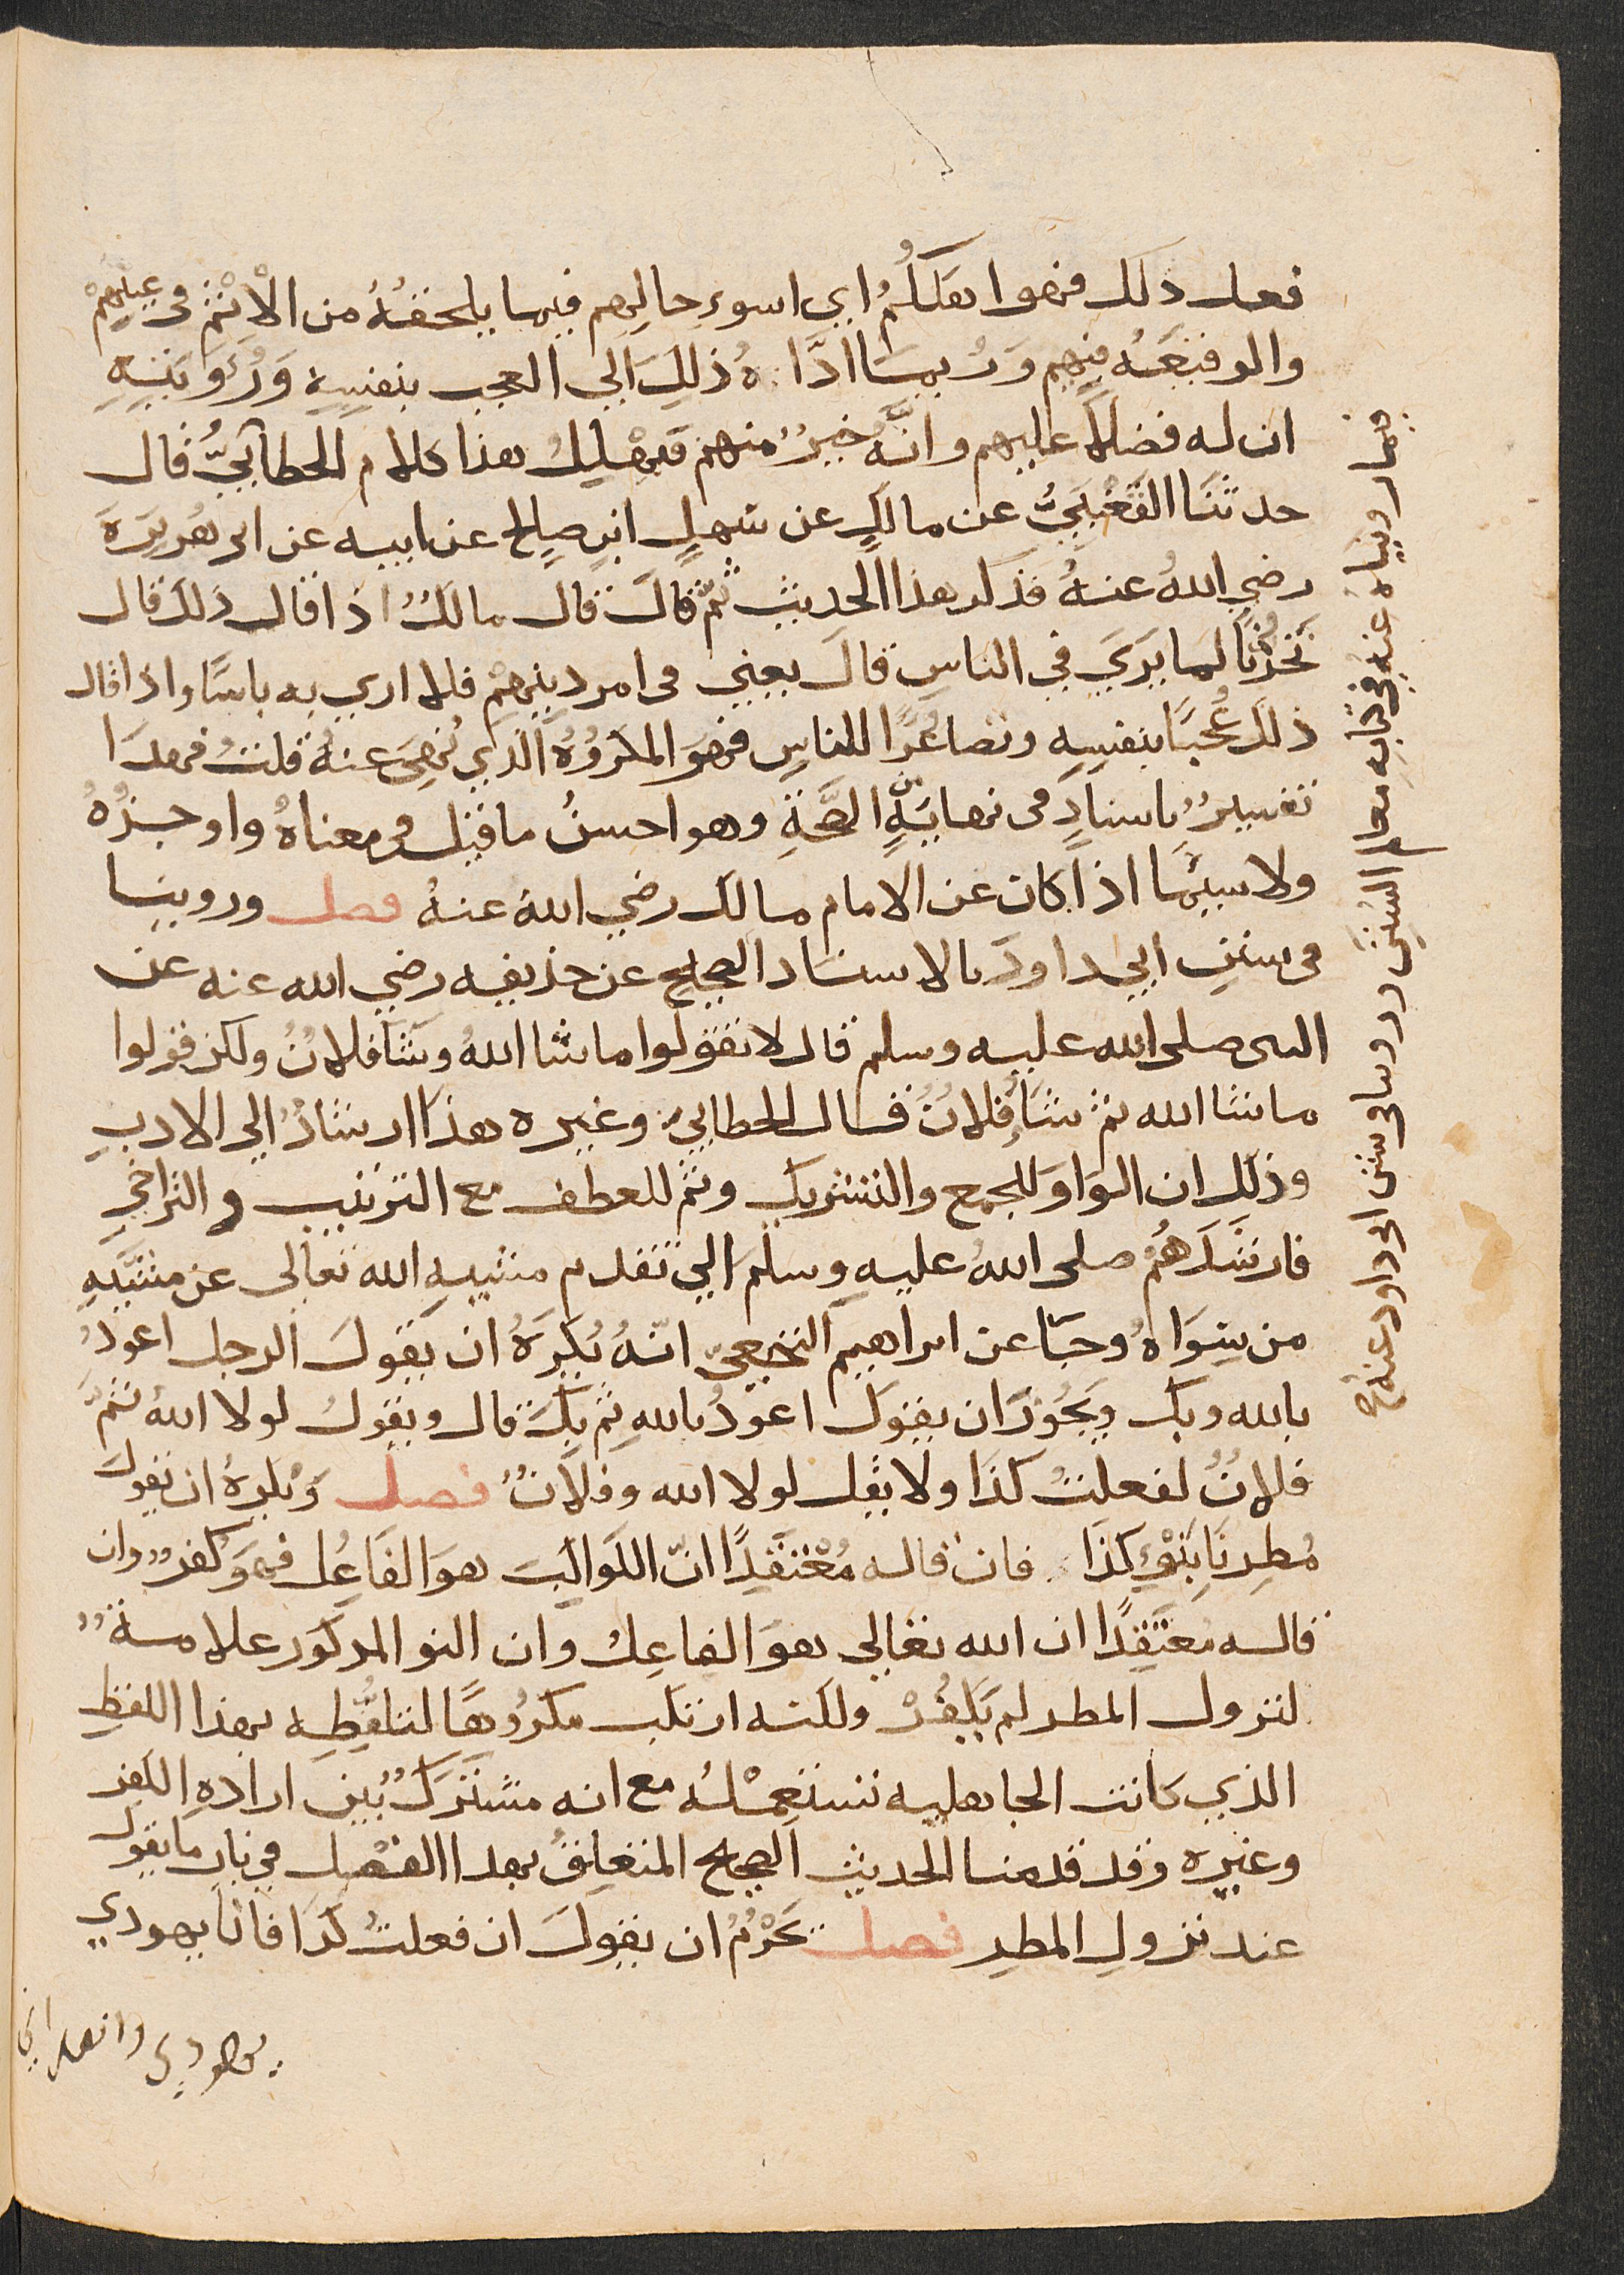 فعل ذلك فهوا هلكهُم اي اسوء حالهم فيما يلحقهُ من الاثم في عيبهم
والوقيعه فيهم وَربما ادّاهُ ذلِك الي العجب بنفسهِ وَرُؤيتهِ
ان له فضلًا عليهم وانَّه خيرٌ منهم فيهلِكُ هذا كلام الخطابيّ قال
حدثنَا القَعْنَبيُّ عن مالكٍ عن سهلِ ابنِ صالح عن ابيه عن ابي هريرَة
رضي اللهُ عنهُ فذكر هذا الحديث ثمّ قالَ قال مالكٌ اذا قال ذلك قال
تحزُّنًا لما يرَي في الناسِ قالَ يعني في امر دينهمْ فلا اري به باسًا واذا قال
ذلكَ عُجبًا بنفسِهِ وتصاغُرًا للناسِ فهوَ المكروُهُ الّذي نُهيَ عنهُ قلتُ فهذا
تفسيرٌ باسنادٍ في نهايةٍ من الصّحَّةِ وهو احسنُ ما قيل في معناهُ واوجزُهُ
ولا سيّما اذا كان عن الامام مالك رضي اللهُ عنهُ فصل وروينا
في سننِ ابي داودَ بالاسنَاد الصحيح عن حذيفه رضي الله عنه عن
النبى صلى الله عليه وسلم قال لا تقولوا ماشا اللهُ وشَآ فلانٌ ولكن قولوا
ماشا الله ثم شَآ فُلانٌ قال الخطابيّ وغيره هذا ارشادٌ الي الادبِ
وذلِك ان الوَاوَ للجمع والتشريك وثم للعطف مع الترتيب والتراخي
فارشَدَهُمْ صلى اللهُ عليهِ وسلَّم الي تقدم مشيه الله تعالى عن مشيَّهِ
من سِوَاهُ وجآ عن ابراهيم النخعيّ انّهُ يُكرَهُ ان يقولَ الرجل اعوذُ
بالله وبك ويجُوزَ ان يقولَ اعوذُ باللهِ ثم بِكَ قال ويقولُ لولا اللهُ ثمَّ
فلانٌ لفعلتُ كذَا ولا يقل لولا الله وفلانٌ فصل وَيُكره ان يقول
مُطِرنَا بِنَوْءِ كذَا فان قاله مُعْتقدًا انّ الكوَاكِبَ هوَ الفَاعِل فهوَ كُفرٌ وان
قاله معتقدًا ان الله تعالى هوَ الفاعِلُ وان النو المذكور علامةٌ
لنزول المطر لم يَكفُرْ ولكنه ارتكب مكرُوهًا لتلفُّظِه بهذا اللفظِ
الذي كانت الجاهليه تستعمْلهُ مع انه مشترَكٌ بينَ ارادهِ الكفر
وغيره وقد قدمنا الحديث الصحيح المتعلقُ بهذا الفصْل في باب ما يقول
عند نزولِ المطر فصل يَحْرُمُ ان يقولَ ان فعلتُ كذا فانَا يهودي
يهودي وانصراني
فيما رويناه عنهُ في كتابهِ معالم السنن وروينا في سنن ابي داود عنهُ